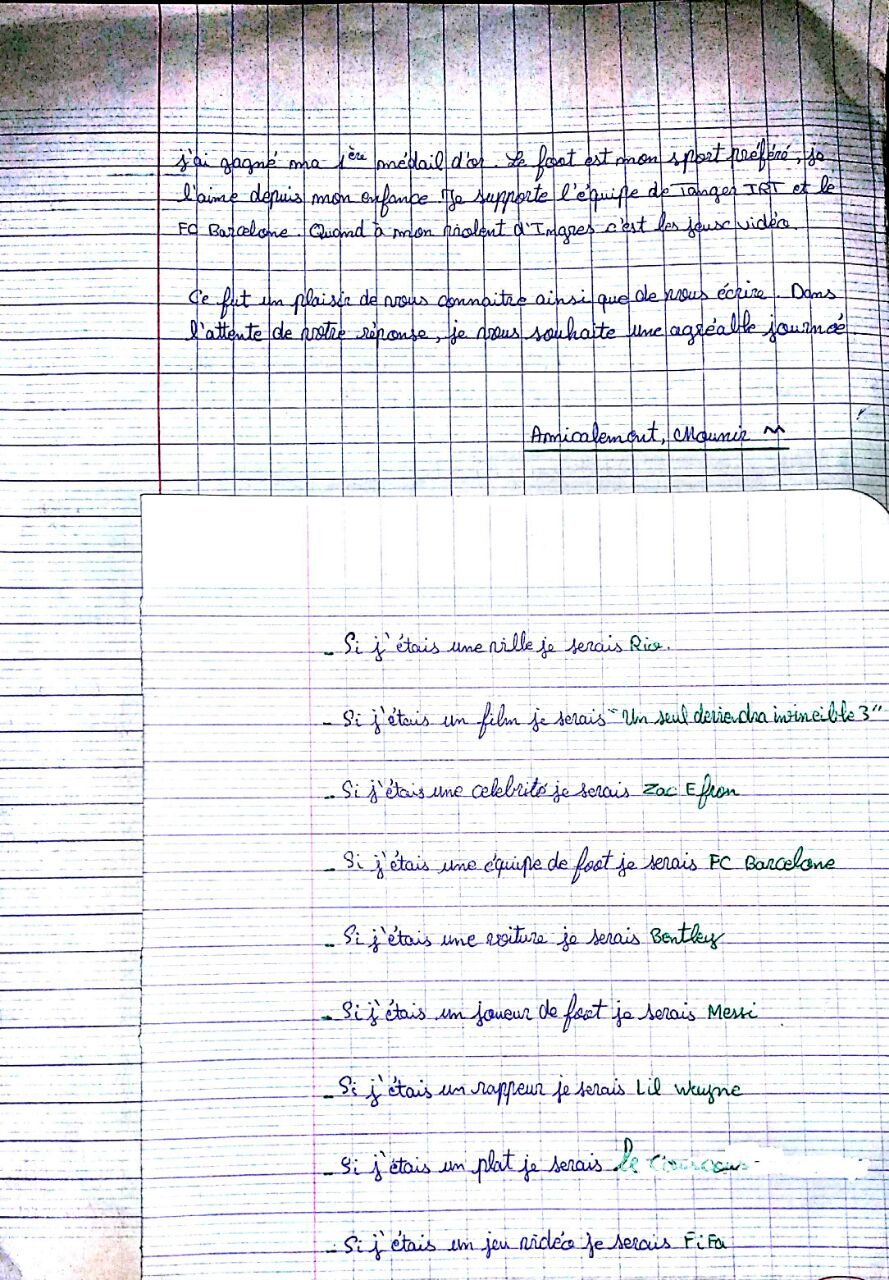 j'ai gagné ma 1ère médail d'or. Le foot est mon sport préféré, je
l'aime depuis mon enfance. Je supporte l'équipe de Tanger IRT et le
FC Barcelone. Quand à mon violent d'Ingres c'est les jeux vidéo.
Ce fut un plaisir de vous connaitre ainsi que de vous écrire. Dans
l'attente de votre réponse, je vous souhaite une agréable journeé.
Amicalement, Mounir
- Si j'étais une ville je serais Rio.
- Si j'étais un film je serais "Un seul deviendra invincible 3"
- Si j'étais une celebrité je serais Zac Efron
- Si j'étais une équipe de foot je serais FC Barcelone
- Si j'étais une voiture je serais Bentley
- Si j'étais un joueur de foot je serais Messi
- Si j'étais un rappeur je serais Lil Wayne
- Si j'étais un plat je serais le Couscous
- Si j'étais un jeu vidéo je serais FiFa